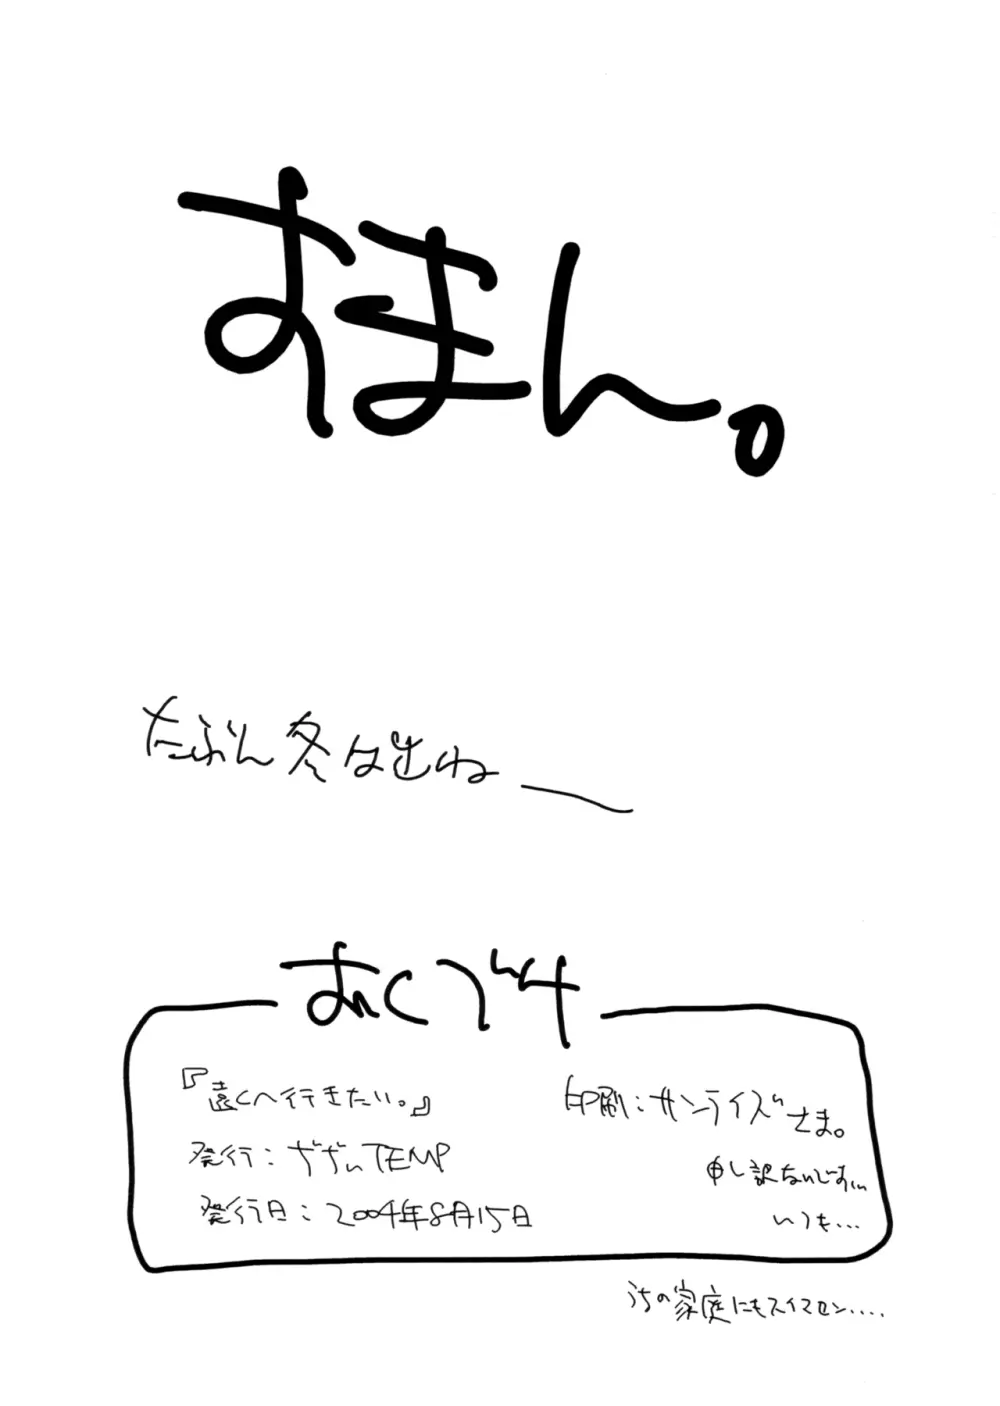 すまん。
たぶん冬は出ね――
おくづけ
『遠くへ行きたい。』
発行：げげいTEMP
発行日：2004年8月15日
印刷：サンライズさま。
申し訳ないです…
いつも…
うちの家庭にもスイマセン‥‥